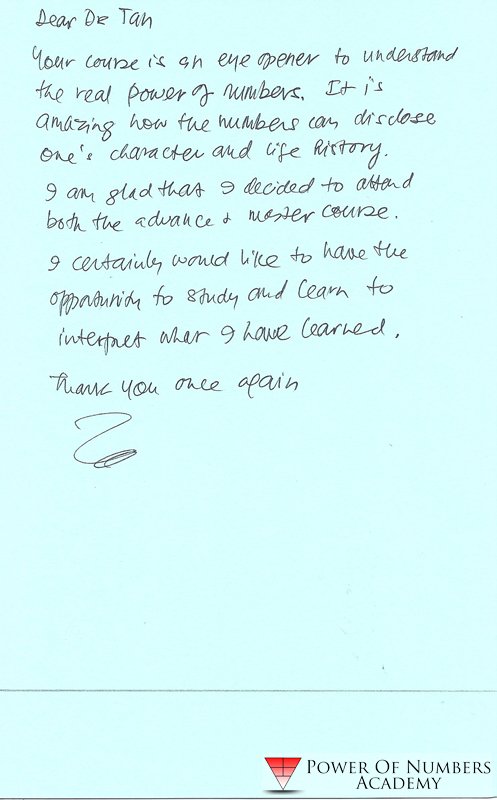 Dear Dr Tan
Your course is an eye opener to understand
the real power of numbers. It is
amazing how the numbers can disclose
one's character and life history.
I am glad that I decided to attend
both the advance & master course.
I certainly would like to have the
opportunity to study and learn to
interpret what I have learned.
Thank you once again
POWER OF NUMBERS
ACADEMY